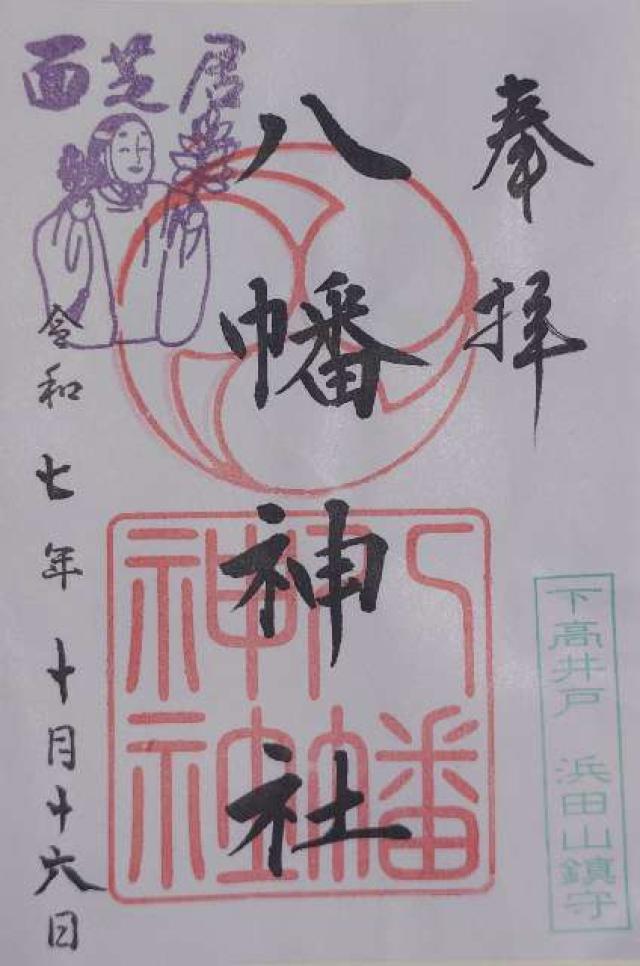 奉拝
下高井戸 浜田山鎮守
八幡神社
八幡神社
面芝居
令和七年十月十六日